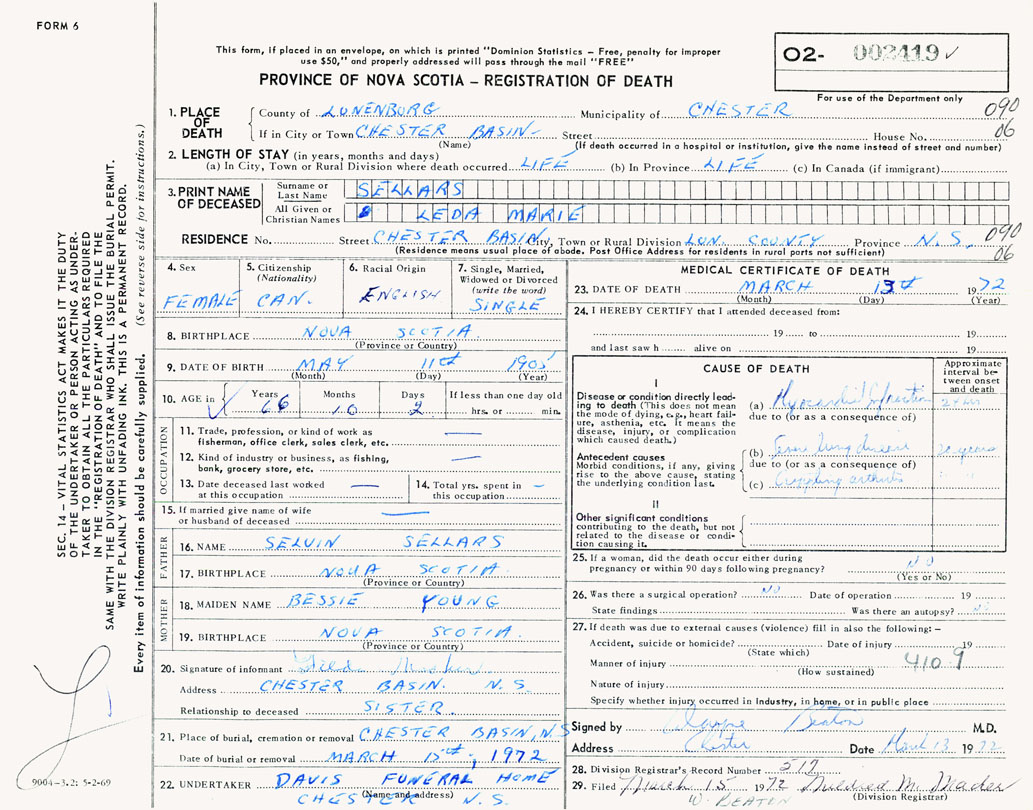 FORM 6
This form, if placed in an envelope, on which is printed "Dominion Statistics – Free, penalty for improper
use $50," and properly addressed will pass through the mail "FREE"
PROVINCE OF NOVA SCOTIA – REGISTRATION OF DEATH
02- 002419 ✓
For use of the Department only
1. PLACE OF DEATH
County of LUNENBURG Municipality of CHESTER 090
If in City or Town CHESTER BASIN Street House No. 06
(Name) (If death occurred in a hospital or institution, give the name instead of street and number)
2. LENGTH OF STAY (in years, months and days)
(a) In City, Town or Rural Division where death occurred LIFE (b) In Province LIFE (c) In Canada (if immigrant)
3. PRINT NAME OF DECEASED
Surname or Last Name SELLARS
All Given or Christian Names LEDA MARIE
RESIDENCE No. Street CHESTER BASIN City, Town or Rural Division LUN. COUNTY Province N.S. 090
(Residence means usual place of abode. Post Office Address for residents in rural parts not sufficient) 06
4. Sex
FEMALE
5. Citizenship (Nationality)
CAN.
6. Racial Origin
ENGLISH
7. Single, Married, Widowed or Divorced (write the word)
SINGLE
8. BIRTHPLACE NOVA SCOTIA
(Province or Country)
9. DATE OF BIRTH MAY 11th 1905
(Month) (Day) (Year)
10. AGE in Years 66 Months 10 Days 2 If less than one day old hrs. or min.
OCCUPATION
11. Trade, profession, or kind of work as fisherman, office clerk, sales clerk, etc. —
12. Kind of industry or business, as fishing, bank, grocery store, etc. —
13. Date deceased last worked at this occupation —
14. Total yrs. spent in this occupation —
15. If married give name of wife or husband of deceased —
FATHER
16. NAME SELVIN SELLARS
17. BIRTHPLACE NOVA SCOTIA
(Province or Country)
MOTHER
18. MAIDEN NAME BESSIE YOUNG
19. BIRTHPLACE NOVA SCOTIA.
(Province or Country)
20. Signature of informant
Address CHESTER BASIN. N.S.
Relationship to deceased SISTER
21. Place of burial, cremation or removal CHESTER BASIN, N.S
Date of burial or removal MARCH 15th, 1972
22. UNDERTAKER DAVIS FUNERAL HOME
(Name and address)
CHESTER N.S.
MEDICAL CERTIFICATE OF DEATH
23. DATE OF DEATH MARCH 13th 1972
(Month) (Day) (Year)
24. I HEREBY CERTIFY that I attended deceased from:
19 to 19
and last saw h alive on 19
CAUSE OF DEATH
Approximate interval between onset and death
I
Disease or condition directly leading to death (This does not mean the mode of dying, e.g., heart failure, asthenia, etc. It means the disease, injury, or complication which caused death.)
(a) Myocardial Infarction
due to (or as a consequence of)
Antecedent causes
Morbid conditions, if any, giving rise to the above cause, stating the underlying condition last.
(b) lung disease 20 years
due to (or as a consequence of)
(c) Crippling arthritis
II
Other significant conditions
contributing to the death, but not related to the disease or condition causing it.
25. If a woman, did the death occur either during pregnancy or within 90 days following pregnancy? NO
(Yes or No)
26. Was there a surgical operation? NO Date of operation 19
State findings Was there an autopsy? No
27. If death was due to external causes (violence) fill in also the following: –
Accident, suicide or homicide? Date of injury 19
(State which)
Manner of injury 410.9
(How sustained)
Nature of injury
Specify whether injury occurred in Industry, in home, or in public place
Signed by Wayne Beaton M.D.
Address Chester Date March 13 1972
28. Division Registrar's Record Number 517
29. Filed March 15 1972 Mildred M. Meader
(Division Registrar)
W. BEATON
SEC. 14 – VITAL STATISTICS ACT MAKES IT THE DUTY
OF THE UNDERTAKER OR PERSON ACTING AS UNDER-
TAKER TO OBTAIN ALL THE PARTICULARS REQUIRED
IN THE "REGISTRATION OF DEATH" AND TO FILE THE
SAME WITH THE DIVISION REGISTRAR WHO SHALL ISSUE THE BURIAL PERMIT.
WRITE PLAINLY WITH UNFADING INK. THIS IS A PERMANENT RECORD.
Every item of information should be carefully supplied. (See reverse side for instructions.)
9004-3.2: 5-2-69